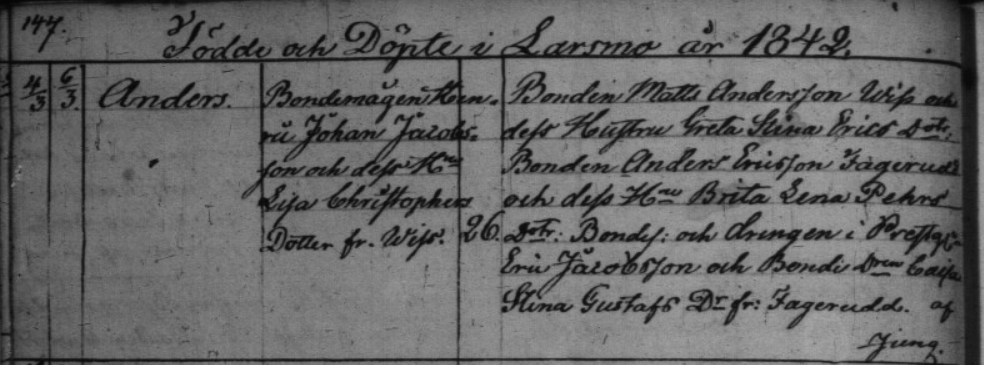 147.
Födde och Döpte i Larsmo år 1842.
4/3 6/3 Anders.
Bondemågen Hen-
ric Johan Jacobs-
son och dess Hru
Lisa Christophers
Dotter fr. Wiss. 26.
Bonden Matts Andersson Wiss och
dess Hustru Greta Stina Erics Dotr,
Bonden Anders Ericsson Fagerudd
och dess Hru Brita Lena Pehrs
Dotr: Bondes: och drängen i Prestg:n
Eric Jacobsson och Bonde Dren Caisa
Stina Gustafs Dr fr: Fagerudd. af
Jung.